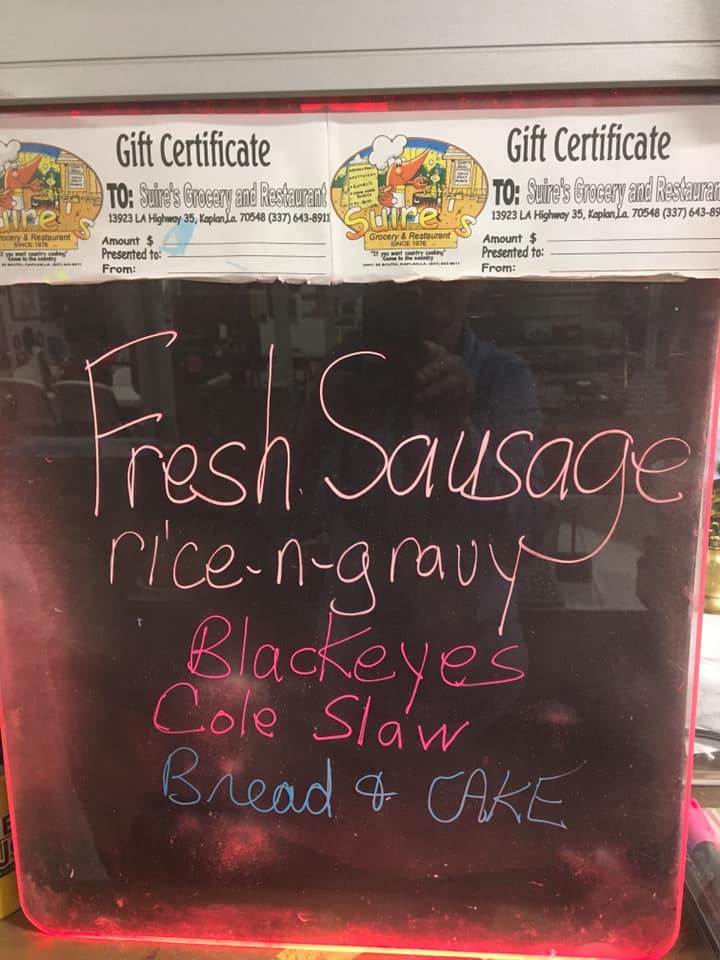 Gift Certificate
TO: Suire's Grocery and Restaurant
13923 LA Highway 35, Kaplan,La. 70548 (337) 643-8911
Suire's
Grocery & Restaurant
SINCE 1976
"If you want country cooking"
"Come to the country"
Amount $
Presented to:
From:
Gift Certificate
TO: Suire's Grocery and Restauran
13923 LA Highway 35, Kaplan,La. 70548 (337) 643-89
Suire's
Grocery & Restaurant
SINCE 1976
"If you want country cooking"
"Come to the country"
Amount $
Presented to:
From:
Fresh Sausage
rice-n-gravy
Blackeyes
Cole Slaw
Bread & CAKE